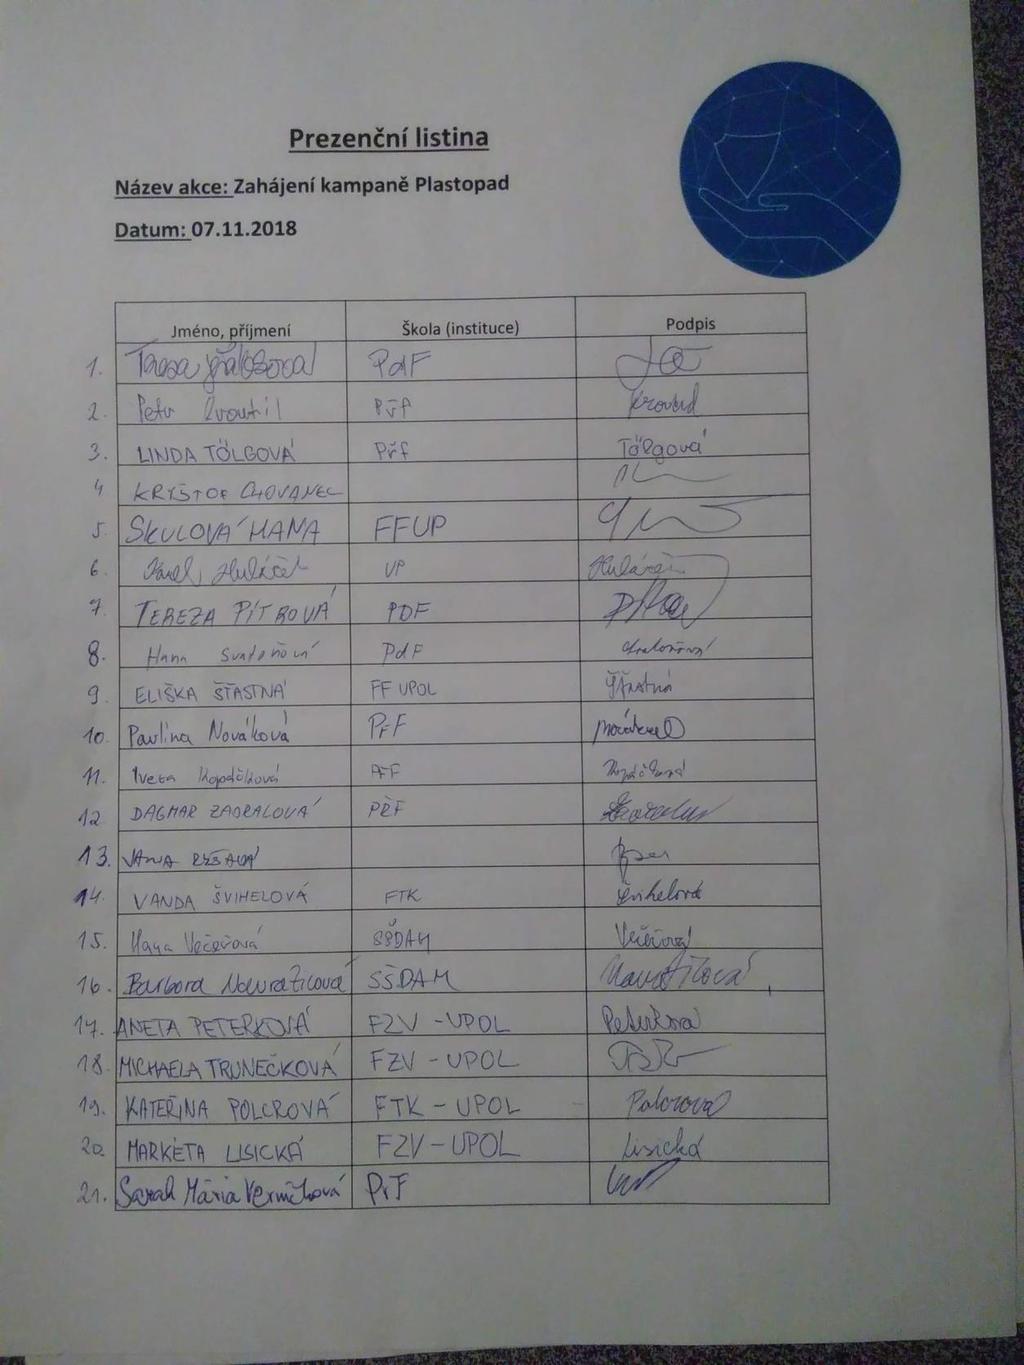 Prezenční listina
Název akce: Zahájení kampaně Plastopad
Datum: 07.11.2018
Jméno, příjmení Škola (instituce) Podpis
1. PdF
2. Petr PřF
3. LINDA TÖLGOVÁ PřF Tölgová
4 KRYŠTOF CHOVANEC
5. SKULOVÁ HANA FFUP
6. Karel UP
7. TEREZA PÍTROVÁ PDF
8. Hana Svatoňová PdF Svatoňová
9. ELIŠKA ŠŤASTNÁ FF UPOL Šťastná
10. Pavlína Nováková PřF Nováková
11. Iveta Kopečková
12 DAGMAR ZAORALOVÁ PŘF
13. JANA
14. VANDA ŠVIHELOVÁ FTK Švihelová
15. Hana Večeřová SŠDAM Večeřová
16. Barbora Navrátilová SŠDAM Navrátilová
17. ANETA PETERKOVÁ FZV - UPOL Peterková
18. MICHAELA TRUNEČKOVÁ FZV - UPOL
19. KATEŘINA POLCROVÁ FTK - UPOL Polcrová
20. MARKÉTA LISICKÁ FZV - UPOL Lisická
21. Sarah Mária PřF